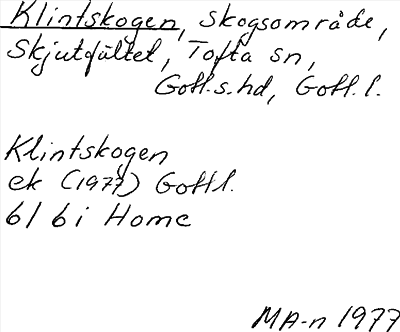 Klintskogen, skogsområde,
Skjutfältet, Tofta sn,
Gotl.s.hd, Gotl. l.
Klintskogen
ek (1977) Gotl l.
6I 6i Home
MA-n 1977